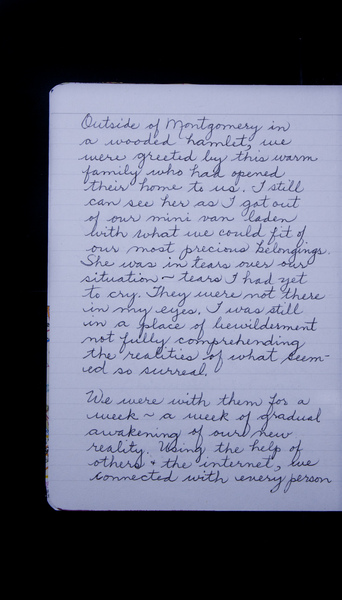 Outside of Montgomery in
a wooded hamlet, we
were greeted by this warm
family who had opened
their home to us. I still
can see her as I got out
of our mini van laden
with what we could fit of
our most precious belongings.
She was in tears over our
situation ~ tears I had yet
to cry. They were not there
in my eyes. I was still
in a place of bewilderment
not fully comprehending
the realities of what seem-
ed so surreal.
We were with them for a
week ~ a week of gradual
awakening of our new
reality. Using the help of
others & the internet, we
connected with every person